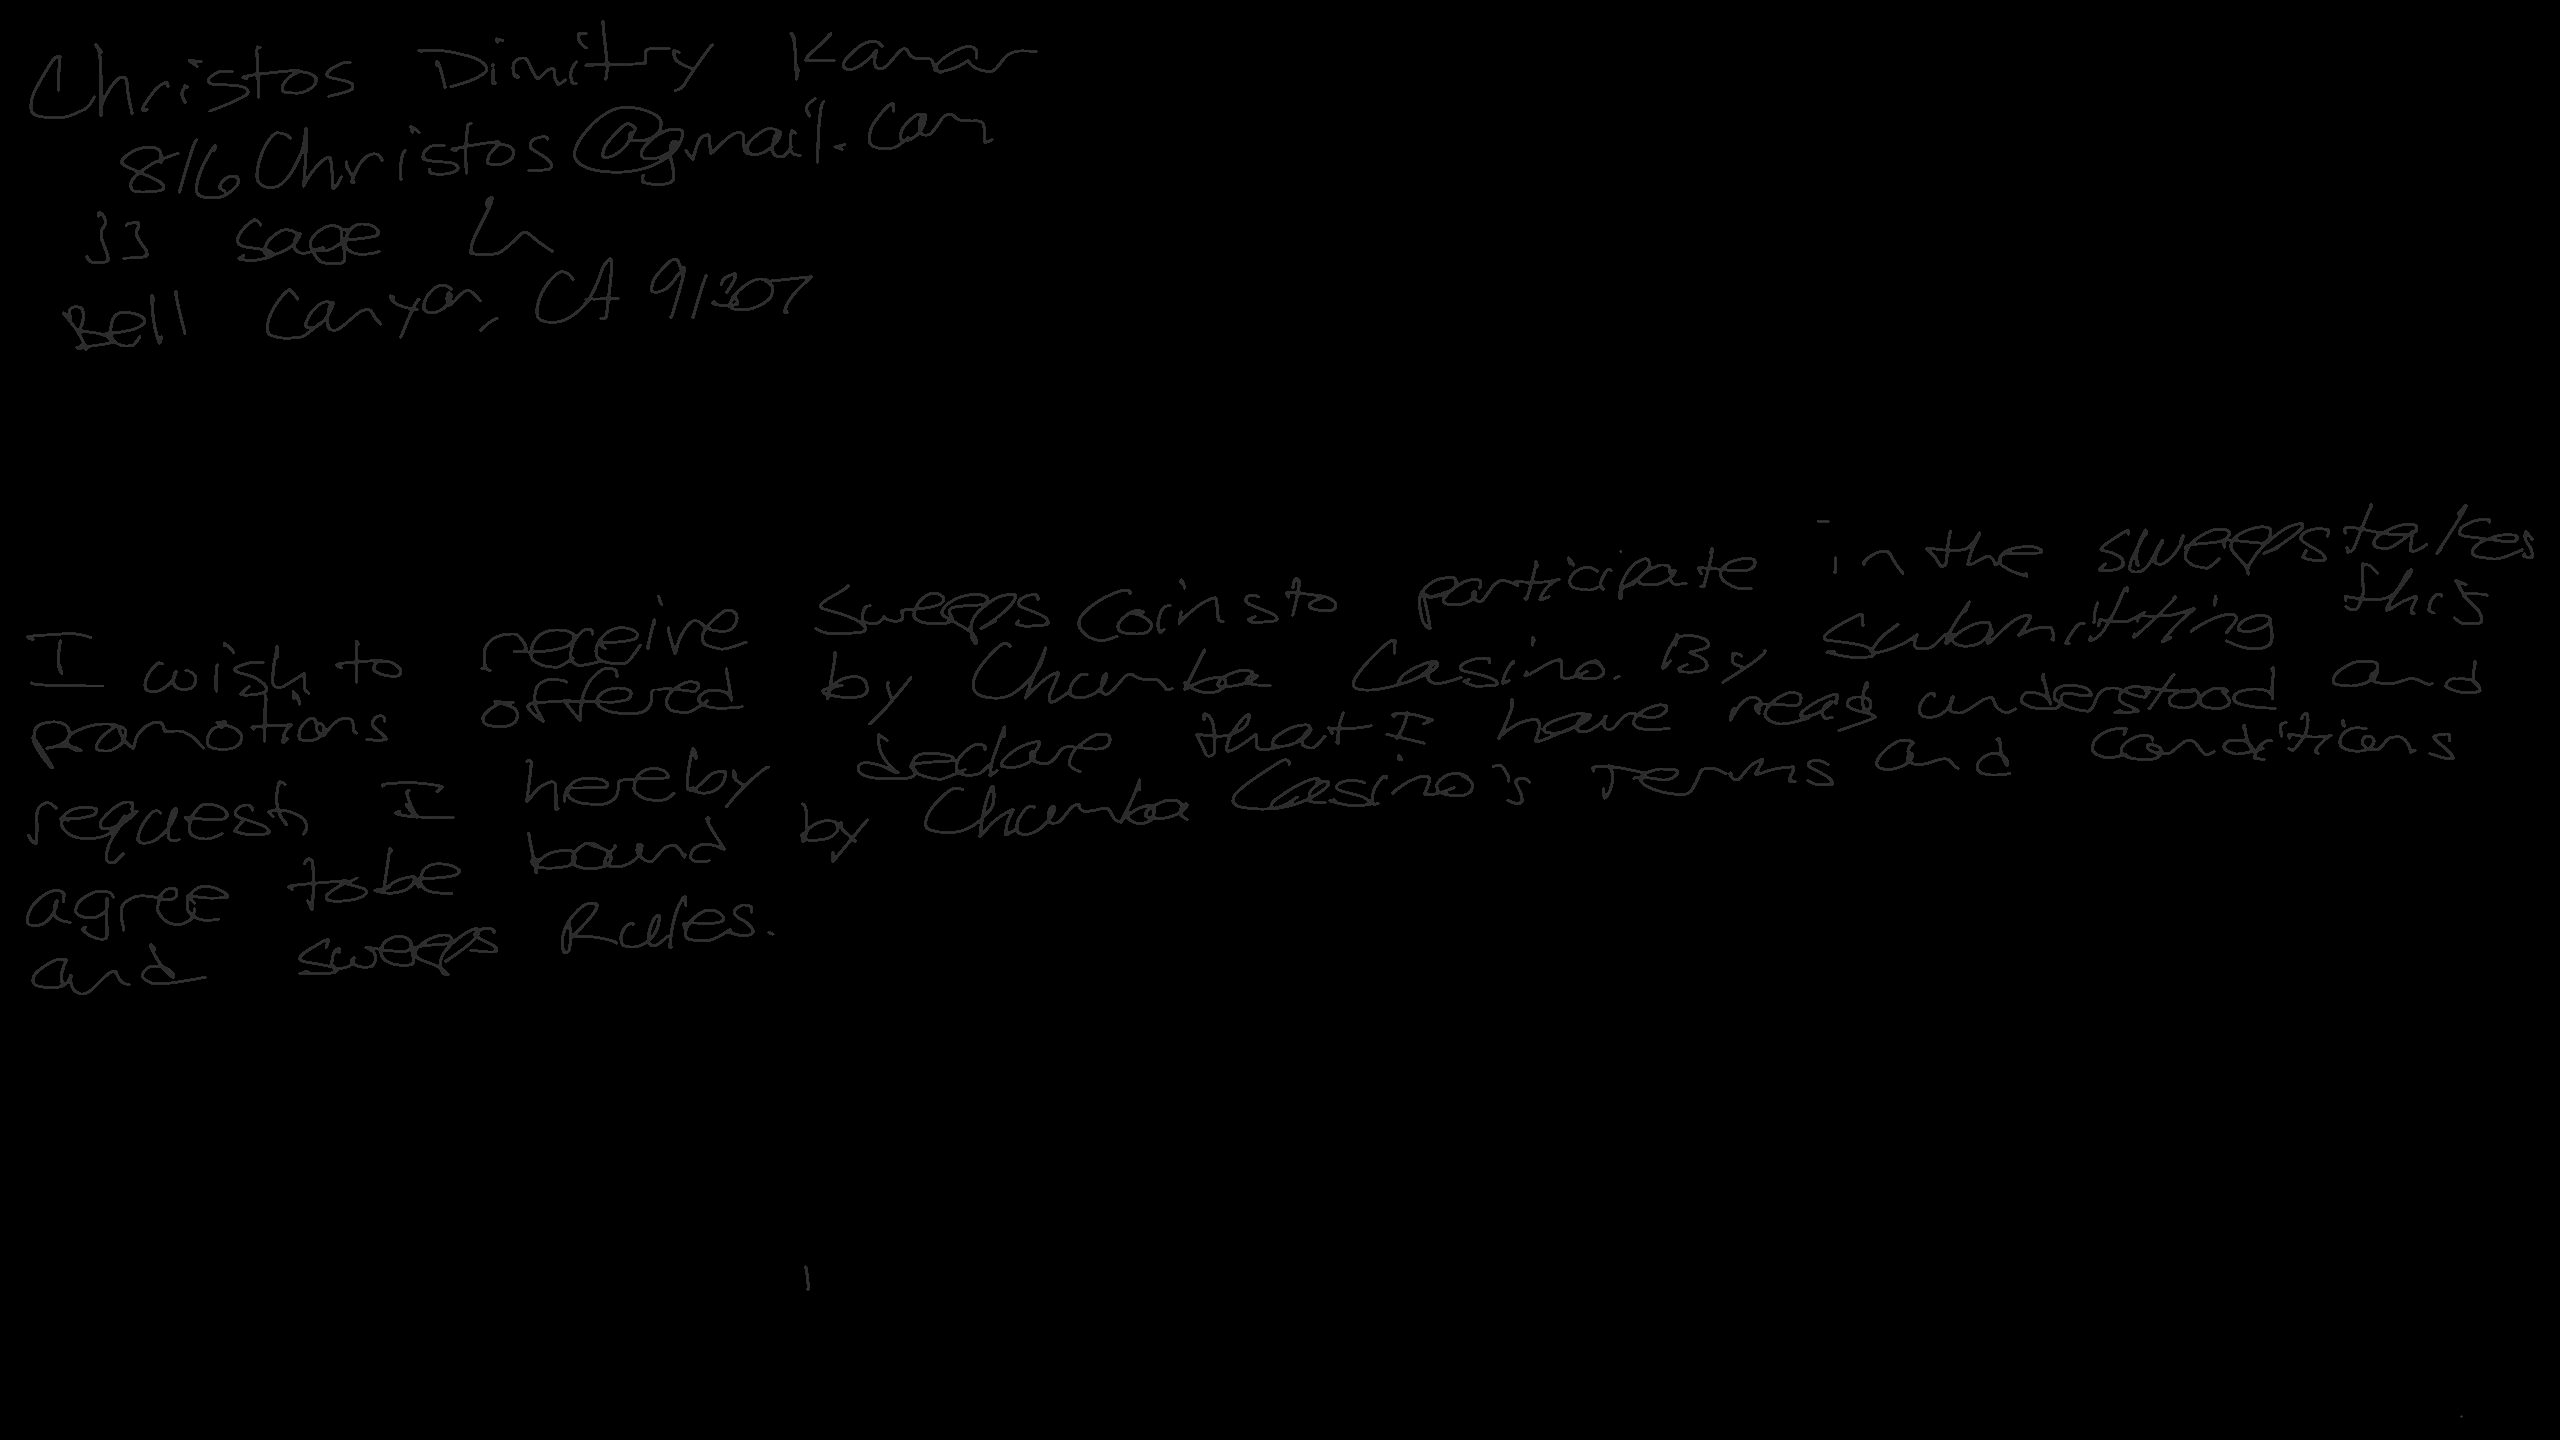 Christos Dimitry Kamar
816Christos@gmail.com
33 sage Ln
Bell Canyon, CA 91307
I wish to receive Sweeps Coins to participate in the sweepstakes
promotions offered by Chumba Casino. By submitting this
request, I hereby declare that I have read understood and
agree to be bound by Chumba Casino's Terms and Conditions
and sweeps Rules.